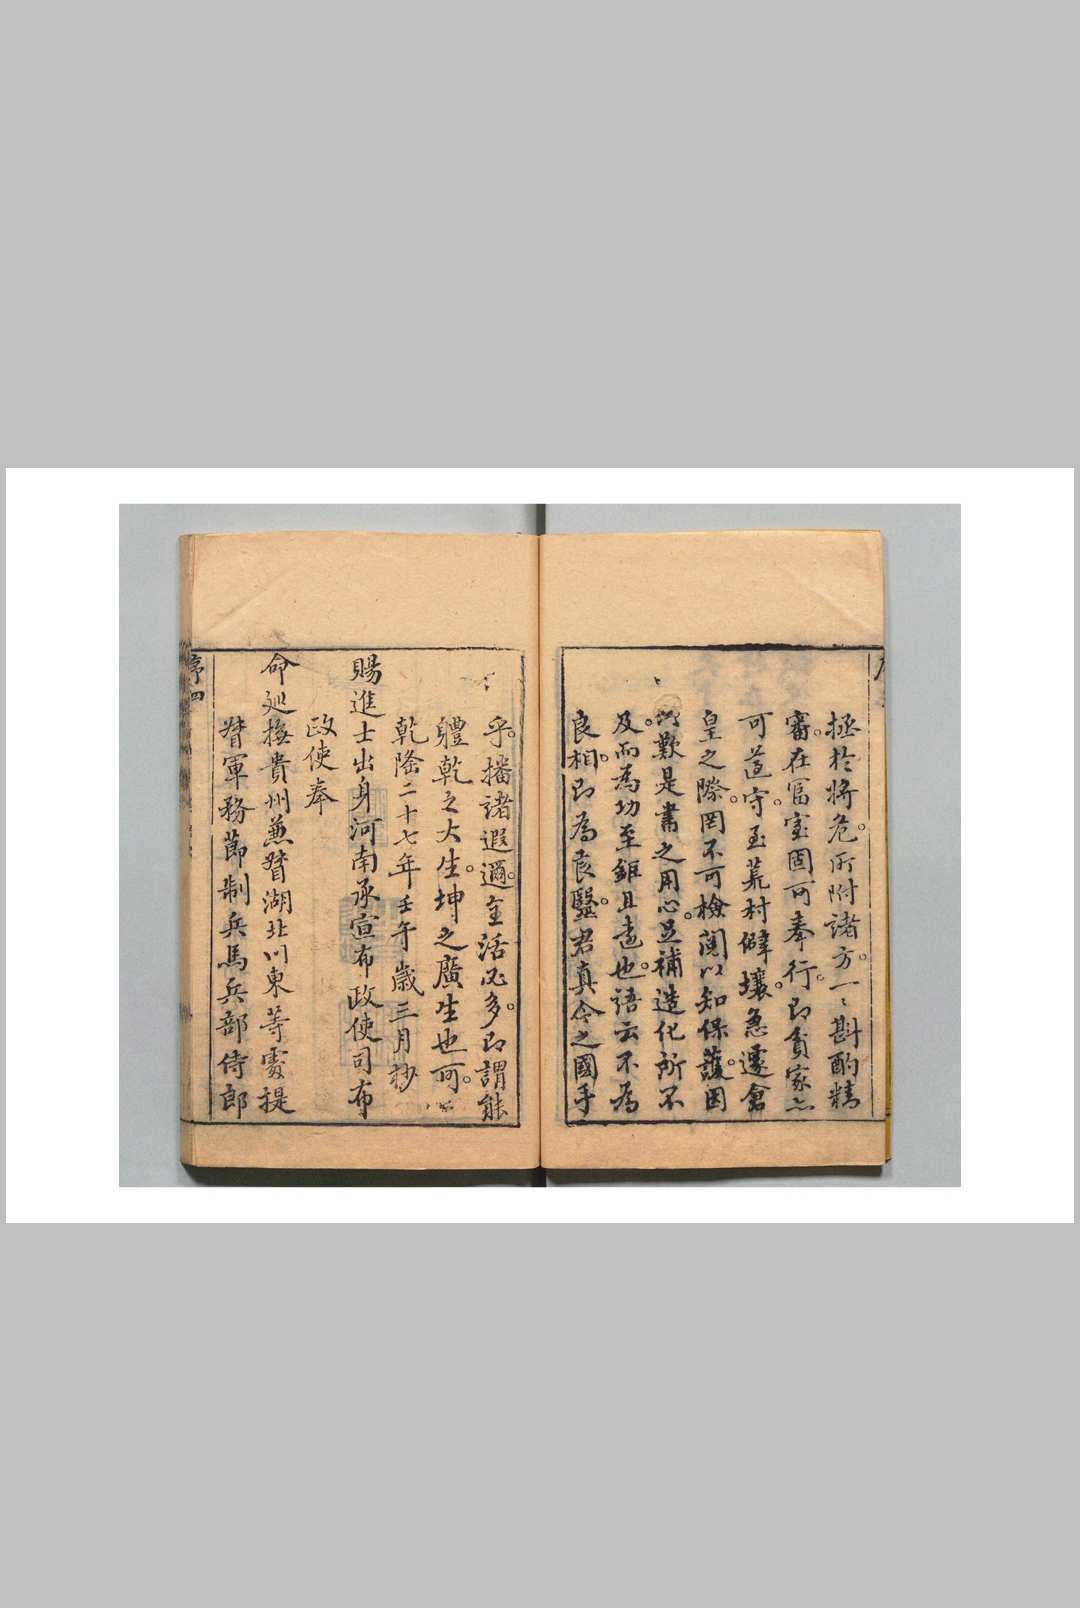 拯於將危。所附諸方。一一斟酌精
審。在富室固可奉行。即貧家亦
可遵守。至荒村僻壤。急遽倉
皇之際。罔不可檢閱以知保護。因
以歎是書之用心。足補造化所不
及。而為功至鉅且遠也。語云不為
良相。即為良醫。君真今之國手
乎。播諸遐邇。全活必多。即謂能
體乾之大生。坤之廣生也可。
乾隆二十七年壬午歲三月杪
賜進士出身河南承宣布政使司布
政使奉
命巡撫貴州兼督湖北川東等處提
督軍務節制兵馬兵部侍郎
序四